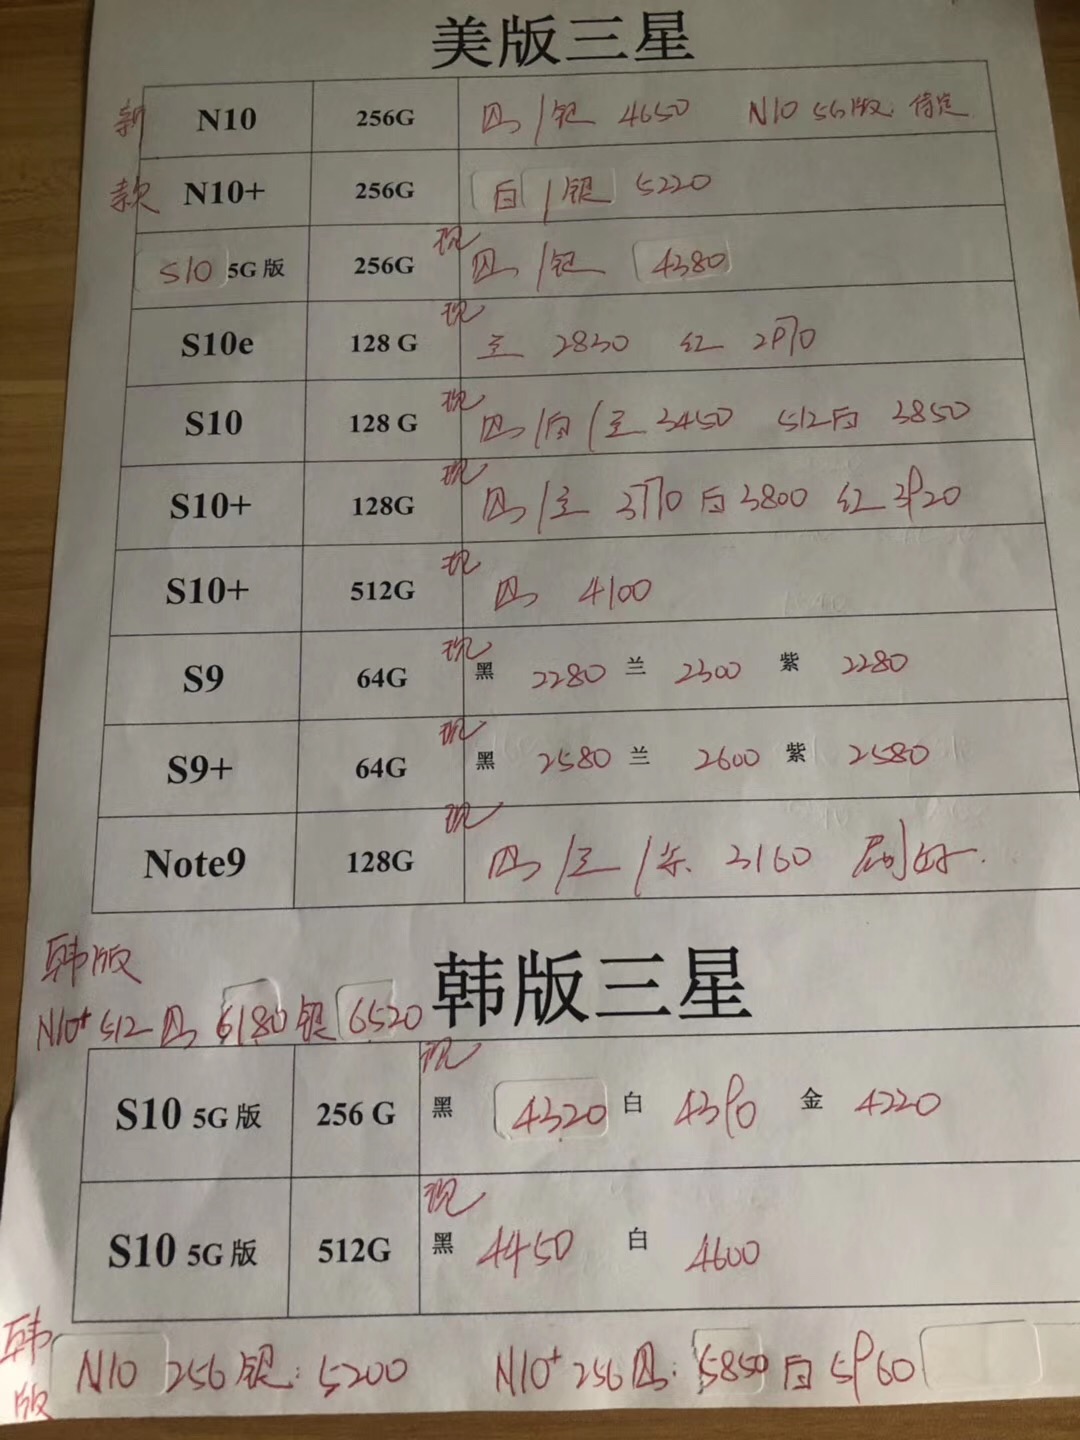 美版三星
新 N10 256G 黑/银 4650 N10 5G版:待定
款 N10+ 256G 白/银 5220
S10 5G版 256G 现 黑/银 4380
S10e 128 G 现 兰 2830 红 2970
S10 128 G 现 黑/白/兰 3450 512白 3850
S10+ 128G 现 黑/兰 3770 白3800 红 3920
S10+ 512G 现 黑 4100
S9 64G 现 黑 2280 兰 2300 紫 2280
S9+ 64G 现 黑 2580 兰 2600 紫 2580
Note9 128G 现 黑/兰/紫 3160 刷好.
韩版
韩版三星
N10+ 512 黑 6180 银 6520
S10 5G版 256 G 现 黑 4320 白 4390 金 4220
S10 5G版 512G 现 黑 4450 白 4600
韩版 N10 256 银: 5200 N10+ 256 黑: 5850 白 5960